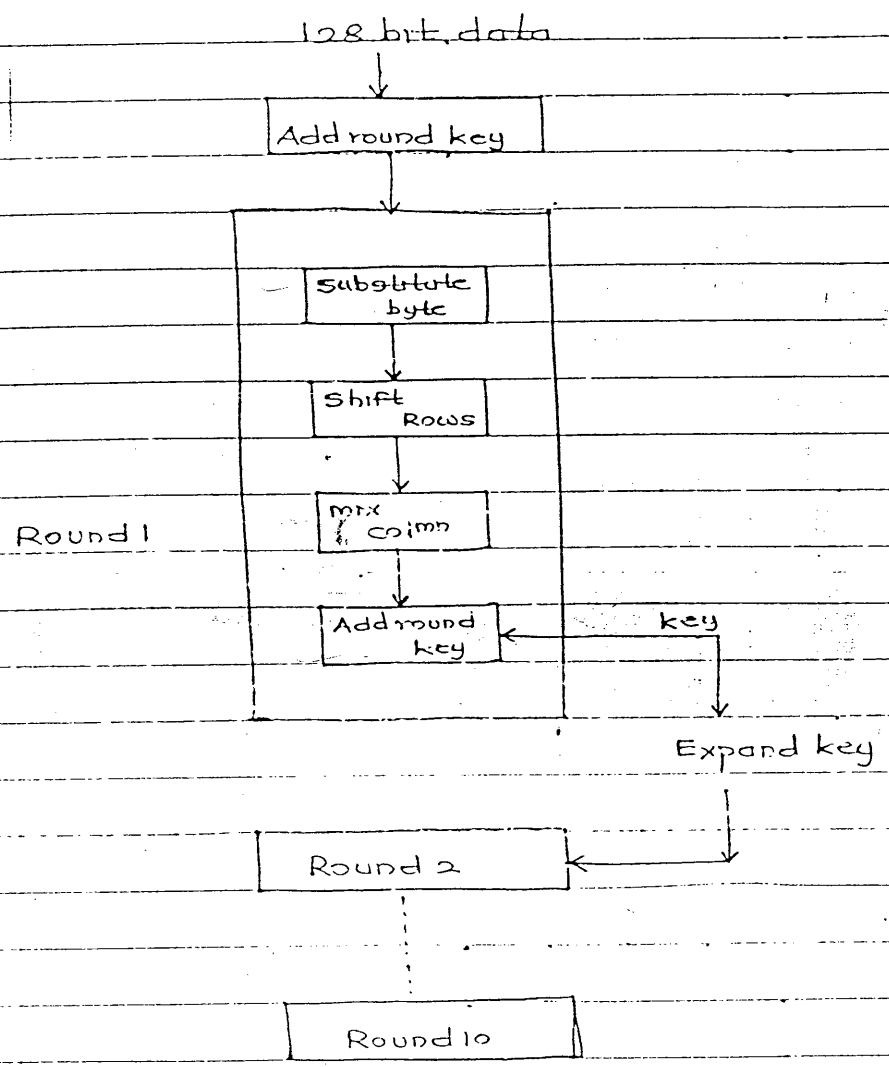 128 bit data
Add round key
Substitute
byte
Shift
Rows
mix
colmn
Round 1
Add round
key
key
Expand key
Round 2
Round 10